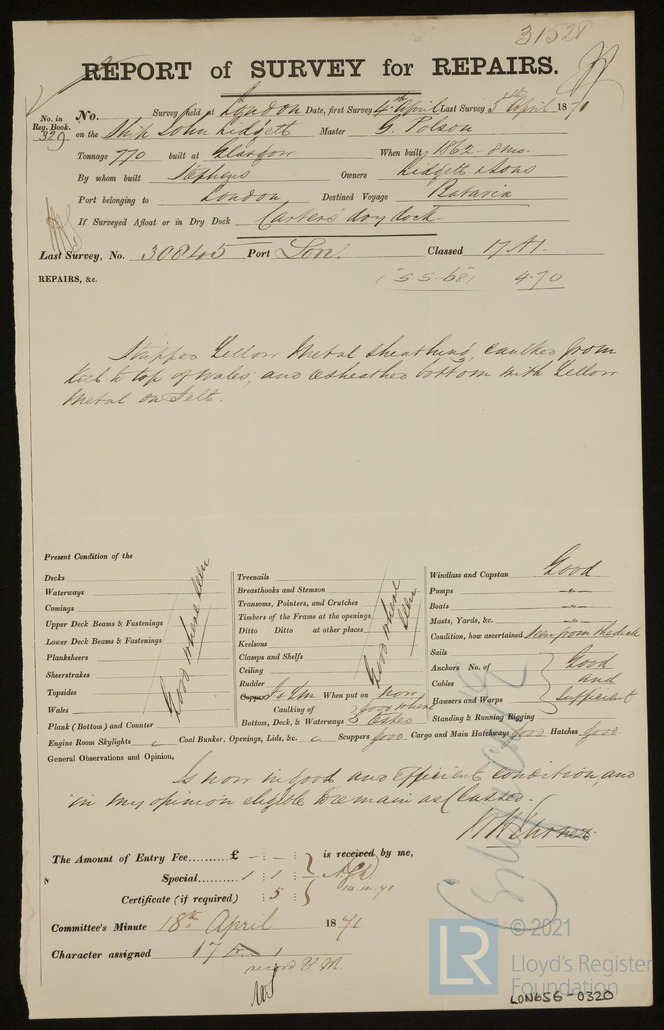 31528
REPORT of SURVEY for REPAIRS.
No. in Reg. Book. No. Survey held at London Date, first Survey 4th April Last Survey 5th April 1871
329 on the Ship John Lidgett Master G. Polson
Tonnage 770 built at Glasgow When built 1862-8mo.
By whom built Stephens Owners Lidgett & Sons
Port belonging to London Destined Voyage Batavia
If Surveyed Afloat or in Dry Dock Carters dry dock
Last Survey, No. 30845 Port Lon. Classed 17 A1.
REPAIRS, &c. (S.S.-68) 4.70
Stripped Yellow Metal sheathing, caulked from
Keel to top of Wales; and resheathed bottom with Yellow
Metal on Felt.
Present Condition of the
Decks
Waterways
Comings
Upper Deck Beams & Fastenings
Lower Deck Beams & Fastenings
Planksheers
Sheerstrakes
Topsides
Wales
Plank (Bottom) and Counter
Good where seen
Treenails
Breasthooks and Stemson
Transoms, Pointers, and Crutches
Timbers of the Frame at the openings
Ditto Ditto at other places
Keelsons
Clamps and Shelfs
Ceiling
Rudder
Good where seen
Copper F & YM When put on now
Caulking of Bottom, Deck, & Waterways } Good where tested
Windlass and Capstan Good
Pumps -"-
Boats -"-
Masts, Yards, &c. -"-
Condition, how ascertained Seen from the deck
Sails
Anchors No. of
Cables
Hausers and Warps
Standing & Running Rigging
Good and Sufficient
Engine Room Skylights Coal Bunker, Openings, Lids, &c. Scuppers good Cargo and Main Hatchways good Hatches good.
General Observations and Opinion,
Is now in good and efficient condition, and
in my opinion eligible to remain as Classed.
The Amount of Entry Fee.........£ - : - : is received by me,
Special......... 1 : 1 :
Certificate (if required) : 5 :
Committee's Minute 18th April 1871
Character assigned 17 A 1
record Y.M.
© 2021
LR
Lloyd's Register
Foundation
LON656-0320